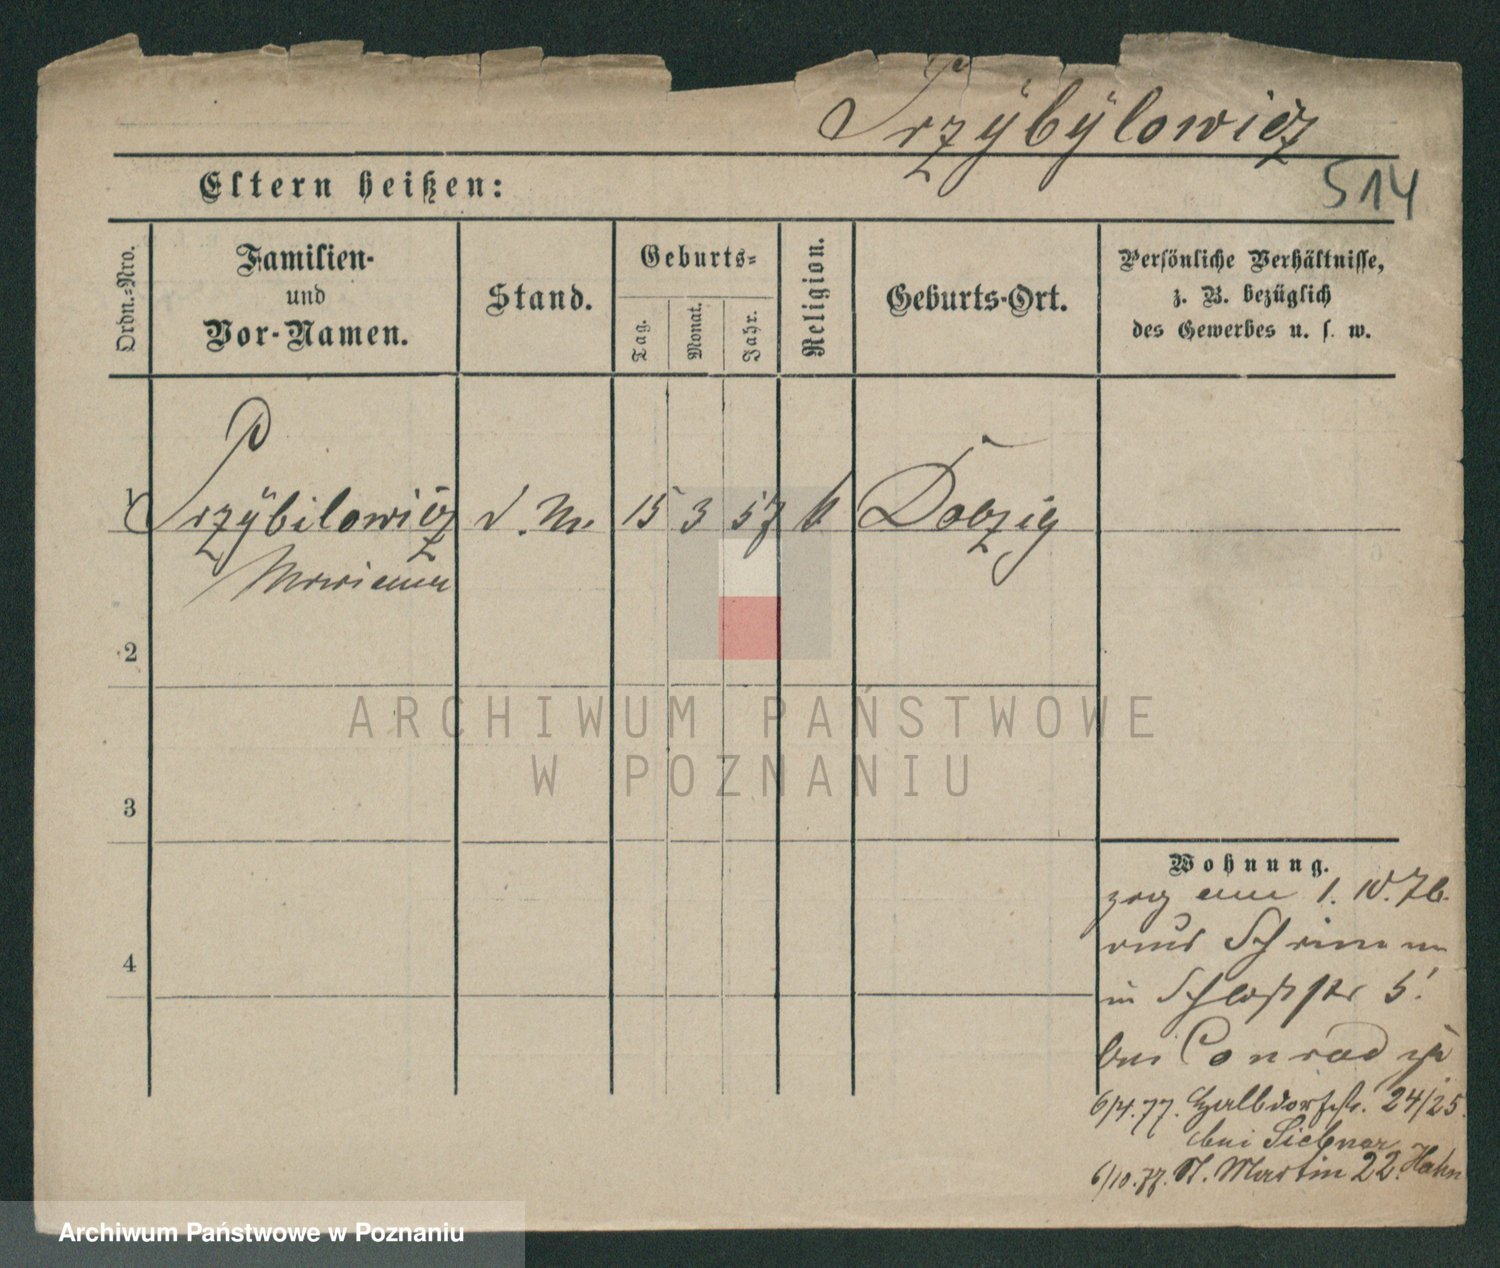 Przÿbÿlowicz
514
Eltern heißen:
Ordn.-Nro.
Familien-
und
Vor-Namen.
Stand.
Geburts-
Tag.
Monat.
Jahr.
Religion.
Geburts-Ort.
Persönliche Verhältnisse,
z. B. bezüglich
des Gewerbes u. s. w.
1 Przÿbilowicz d. M. 15 3 57 k Dolzig
Marianna
2
3
4
Wohnung.
zog am 1. 10. 76.
aus Schrimm
in Schloßstr 5.
bei Conrad
6/4. 77. Halbdorfstr. 24/25.
bei
6/10. 77. St. Martin 22. Hahn
ARCHIWUM PAŃSTWOWE
W POZNANIU
Archiwum Państwowe w Poznaniu